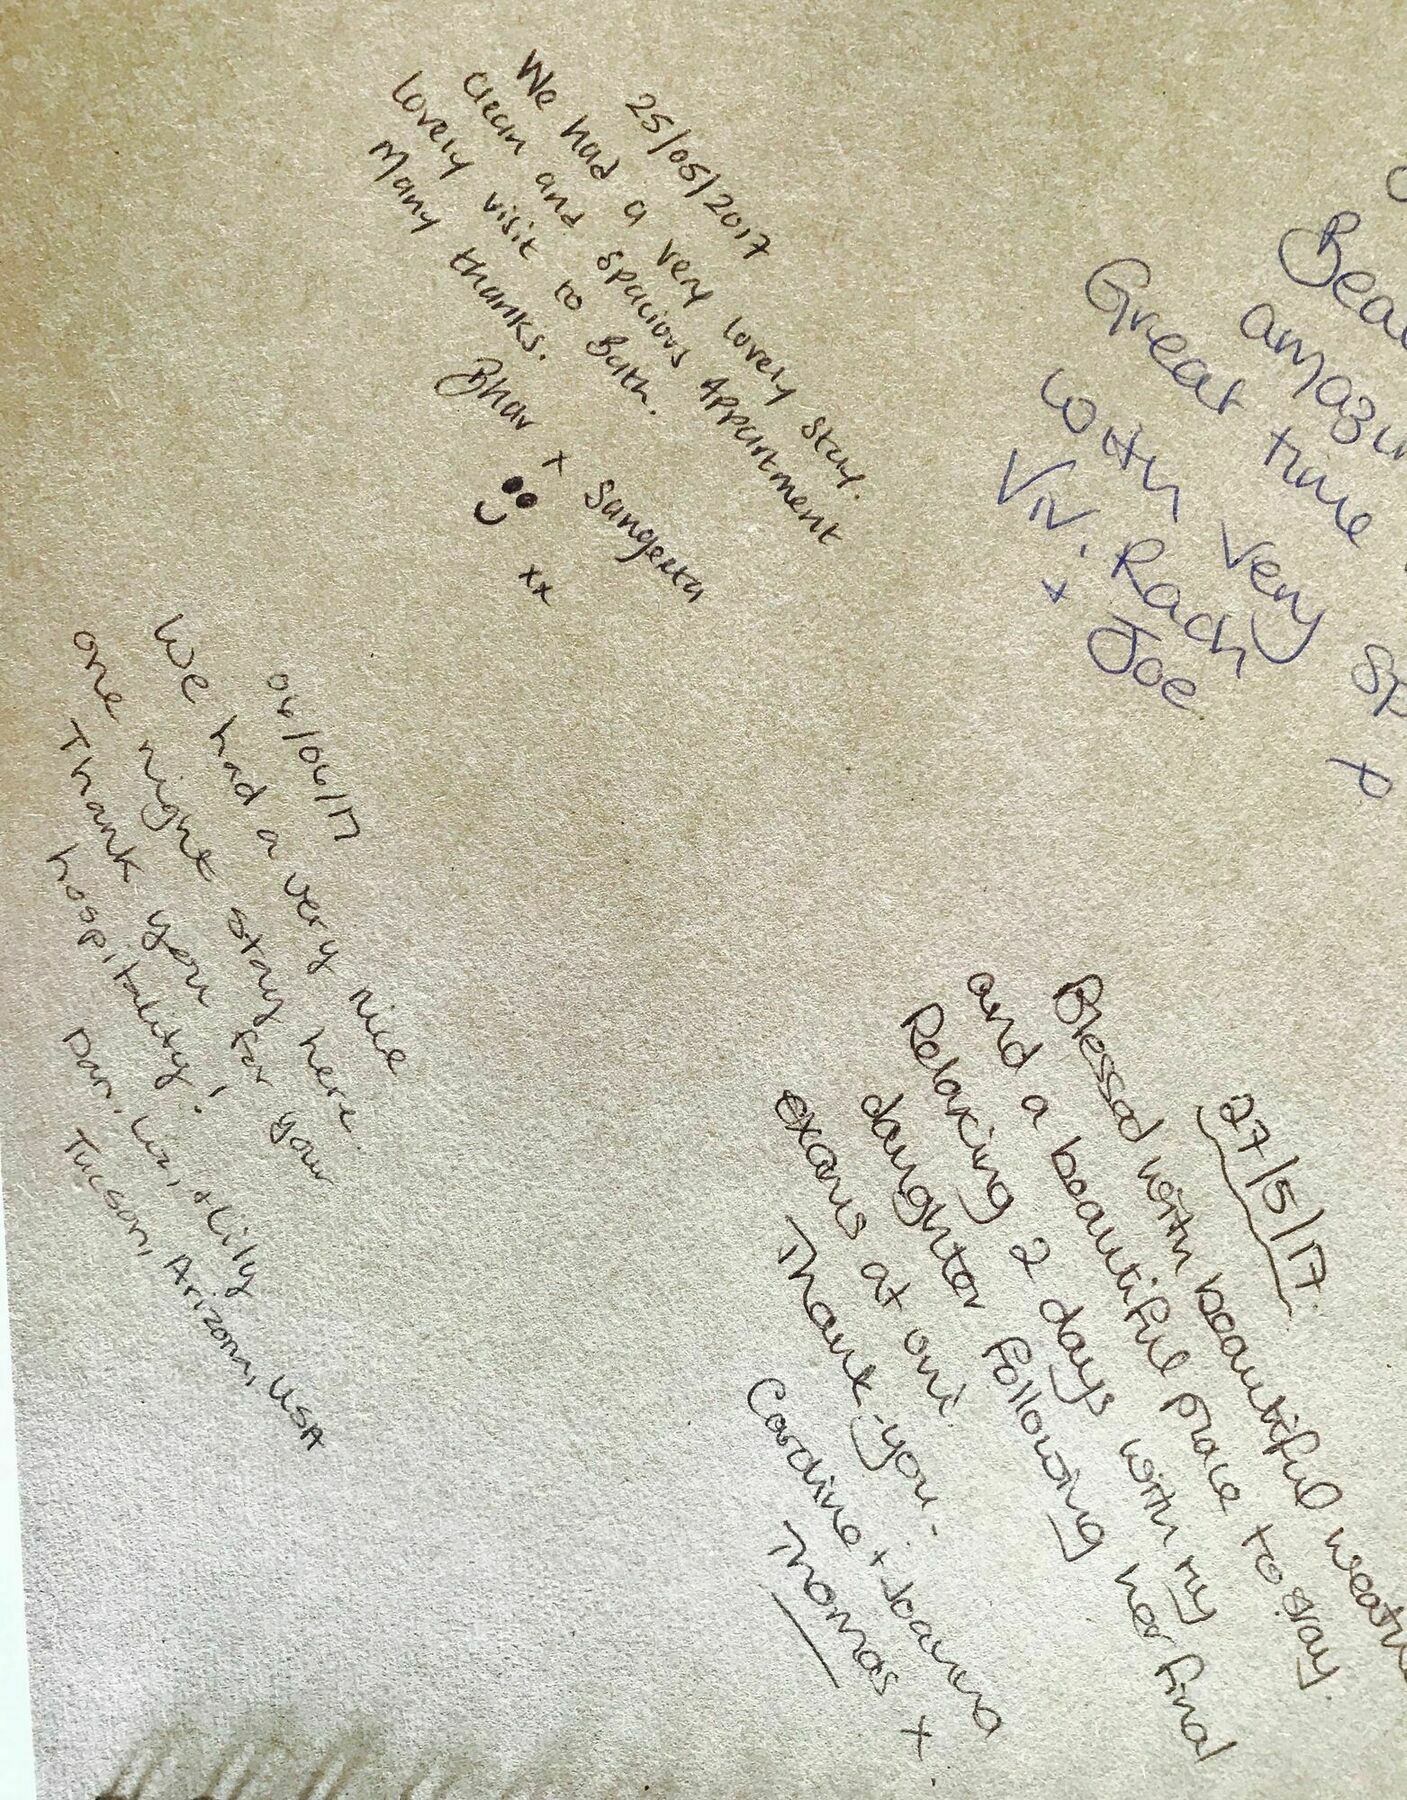 25/05/2017
We had a very lovely stay.
Clean and spacious Appartment
lovely visit to Bath.
Many thanks.
Bhav + Sangeeta
xx
Beau
amazin
Great time
with very sp
Viv, Rach
+ Joe
x
04/06/17
We had a very nice
one night stay here.
Thank you for your
hospitality!
Dan, Liz, + Lily
Tucson, Arizona, USA
27/5/17.
Blessed with beautiful weath
and a beautiful place to stay.
Relaxing 2 days with my
daughter following her final
exams at uni.
Thank-you.
Caroline + Joanna
Thomas x.